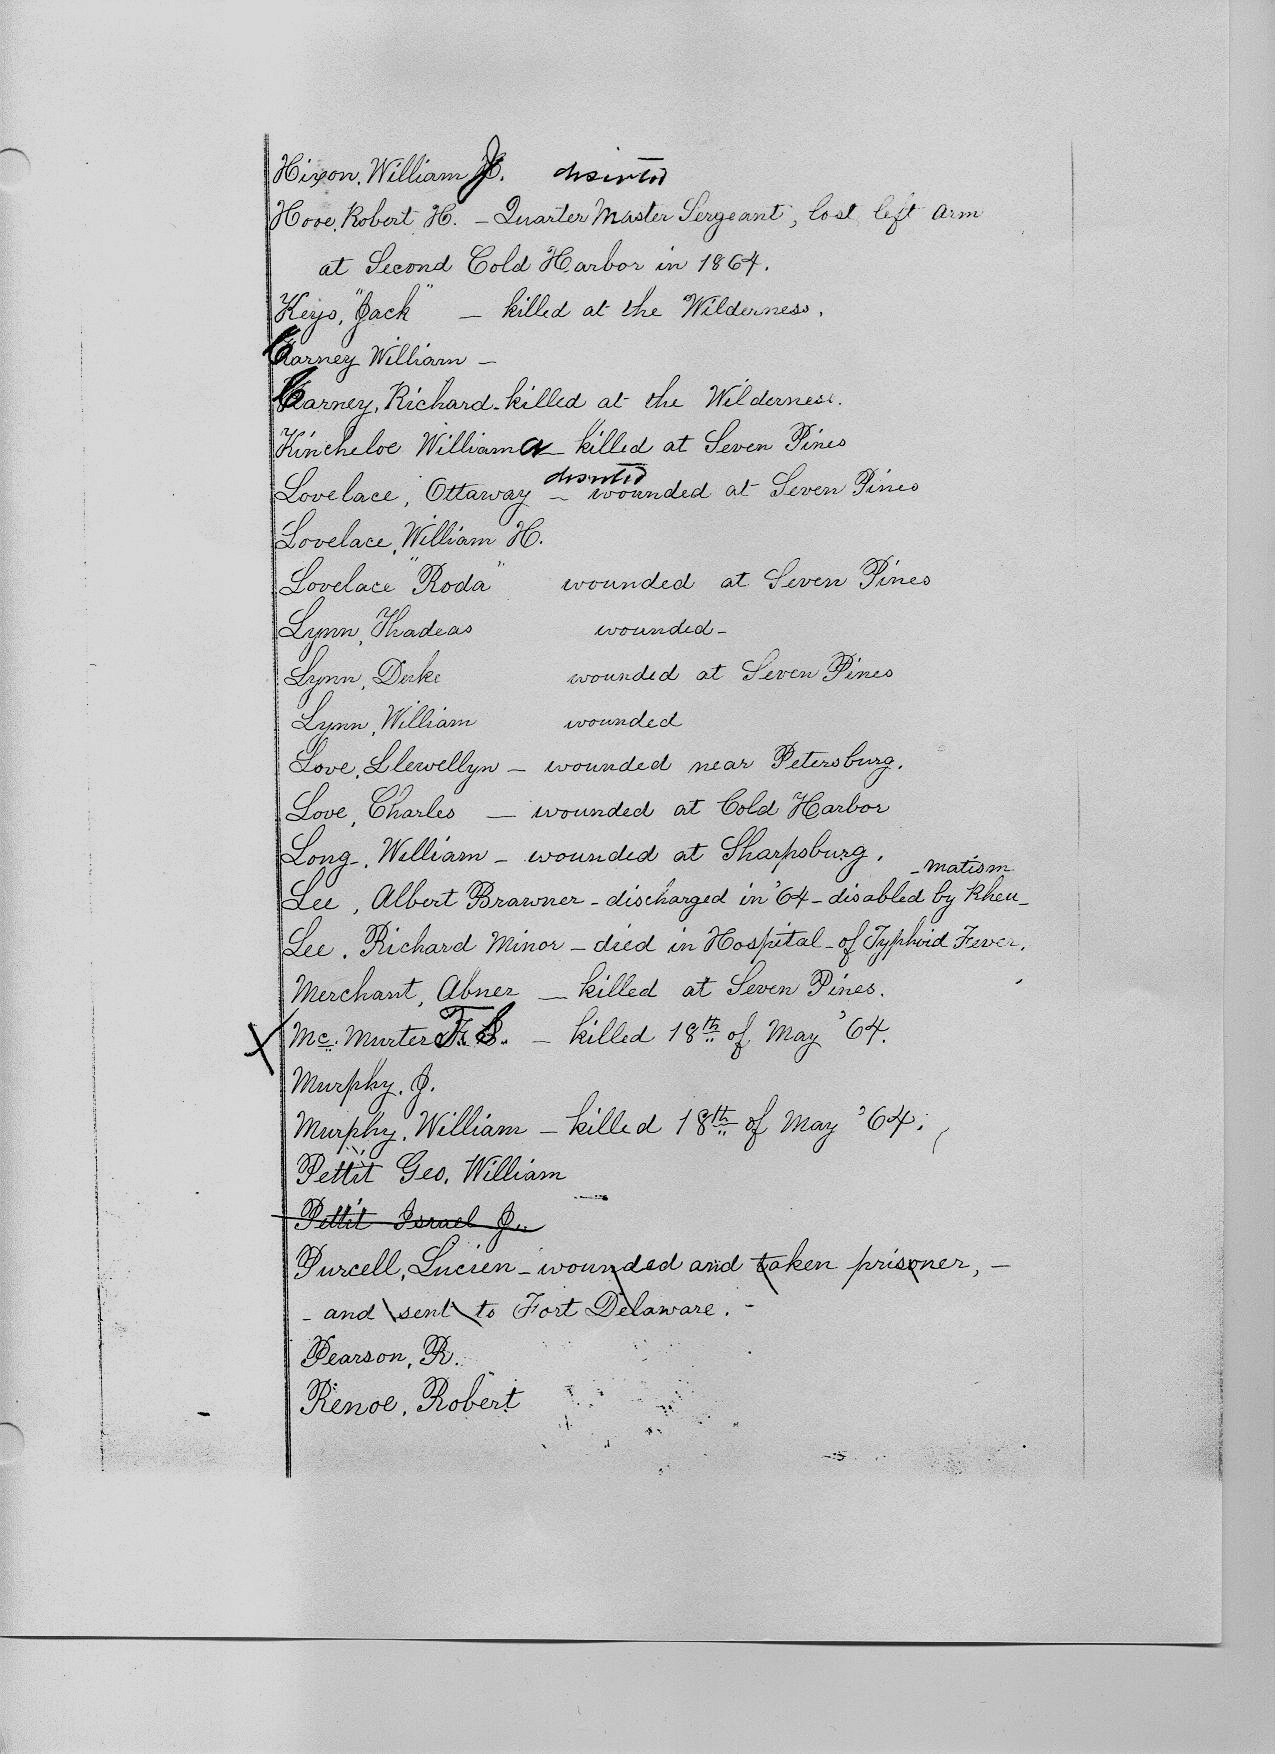 Hixon, William J. deserted
Hove, Robert H. – Quarter Master Sergeant, lost left arm
at Second Cold Harbor in 1864.
Keys, "Jack" – killed at the Wilderness.
Carney William –
Carney, Richard - killed at the Wilderness.
Kincheloe William A – killed at Seven Pines
deserted
Lovelace, Ottaway – wounded at Seven Pines
Lovelace, William H.
Lovelace "Roda" wounded at Seven Pines
Lynn, Thadeas wounded –
Lynn, Duke wounded at Seven Pines
Lynn, William wounded
Love, Llewellyn – wounded near Petersburg.
Love, Charles – wounded at Cold Harbor
Long, William – wounded at Sharpsburg.
- matism
Lee, Albert Brawner – discharged in '64 – disabled by Rheu-
Lee, Richard Minor – died in Hospital – of Typhoid Fever.
Merchant, Abner – killed at Seven Pines.
X Mc. Murter F. – killed 18th of May '64.
Murphy, J.
Murphy, William – killed 18th of May '64.
Pettit Geo. William
Pettit Israel J.
Purcell, Lucien – wounded and taken prisoner, –
– and sent to Fort Delaware. –
Pearson, R.
Renoe, Robert